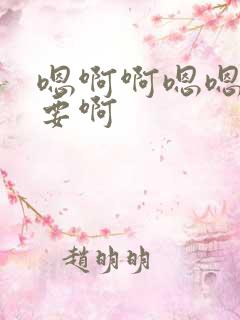 嗯啊啊嗯嗯
要啊
趙明明